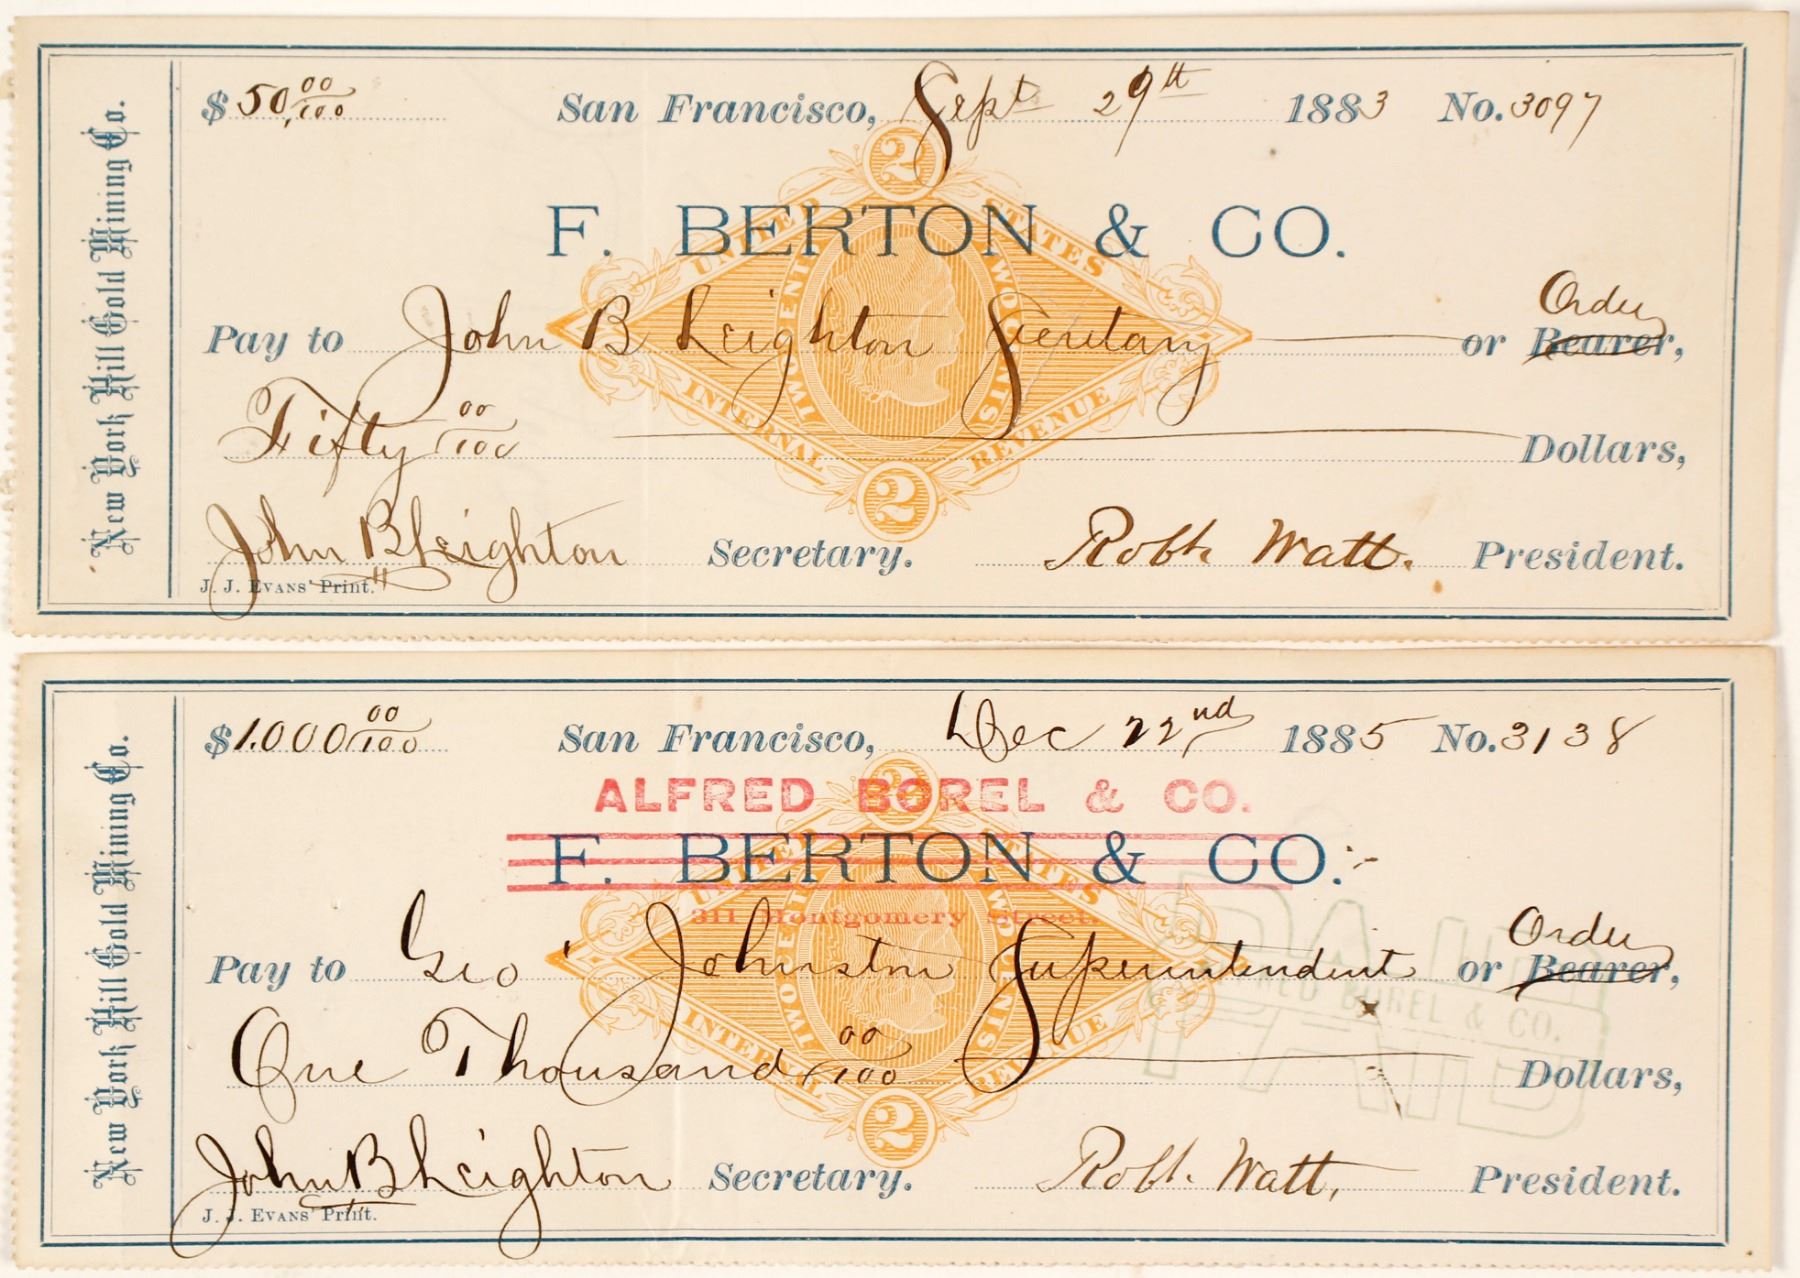 New York Hill Gold Mining Co.
$ 50,00/100 San Francisco, Sept 29th 1883 No. 3097
2
UNITED STATES
F. BERTON & CO.
Order
Pay to John B Leighton Secretary or Bearer,
TWO CENTS
INTERNAL REVENUE
Fifty 00/100 Dollars,
2
John B Leighton Secretary. Robt. Watt. President.
J. J. EVANS' Print.
New York Hill Gold Mining Co.
$ 1.000 00/100 San Francisco, Dec 22nd 1885 No. 3138
2
ALFRED BOREL & CO.
UNITED STATES
F. BERTON & CO.
311 Montgomery Street.
Order
Pay to Geo Johnston Superintendent or Bearer,
PAID
ALFRED BOREL & CO.
PAID
INTERNAL REVENUE
One Thousand 00/100 Dollars,
2
John B Leighton Secretary. Robt. Watt, President.
J. J. EVANS' Print.